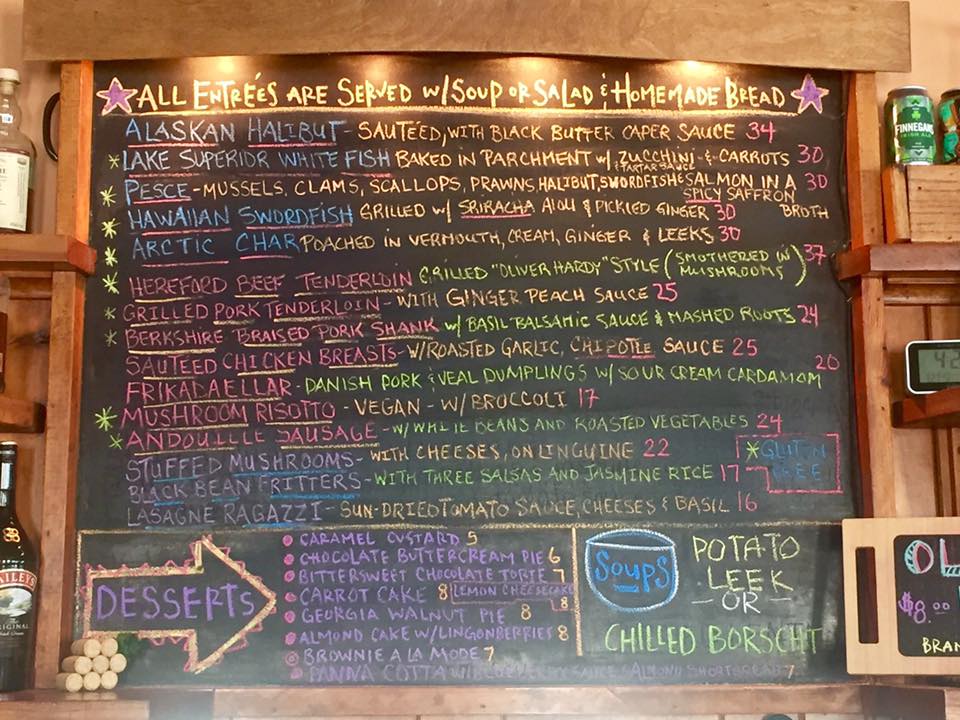 ALL ENTRÉES ARE SERVED W/SOUP OR SALAD & HOMEMADE BREAD
ALASKAN HALIBUT - SAUTÉED, WITH BLACK BUTTER CAPER SAUCE 34
* LAKE SUPERIOR WHITE FISH BAKED IN PARCHMENT W/ ZUCCHINI & CARROTS 30
& TARTAR SAUCE
* PESCE - MUSSELS, CLAMS, SCALLOPS, PRAWNS, HALIBUT, SWORDFISH & SALMON IN A 30
SPICY SAFFRON
BROTH
* HAWAIIAN SWORDFISH GRILLED W/ SRIRACHA AIOLI & PICKLED GINGER 30
* ARCTIC CHAR POACHED IN VERMOUTH, CREAM, GINGER & LEEKS 30
* HEREFORD BEEF TENDERLOIN GRILLED "OLIVER HARDY" STYLE (SMOTHERED IN 37
MUSHROOMS)
* GRILLED PORK TENDERLOIN - WITH GINGER PEACH SAUCE 25
* BERKSHIRE BRAISED PORK SHANK W/ BASIL BALSAMIC SAUCE & MASHED ROOTS 24
SAUTEED CHICKEN BREASTS - W/ROASTED GARLIC, CHIPOTLE SAUCE 25
FRIKADAELLAR - DANISH PORK & VEAL DUMPLINGS W/ SOUR CREAM CARDAMOM 20
* MUSHROOM RISOTTO - VEGAN - W/ BROCCOLI 17
* ANDOUILLE SAUSAGE - W/ WHITE BEANS AND ROASTED VEGETABLES 24
STUFFED MUSHROOMS - WITH CHEESES, ON LINGUINE 22
BLACK BEAN FRITTERS - WITH THREE SALSAS AND JASMINE RICE 17
LASAGNE RAGAZZI - SUN-DRIED TOMATO SAUCE, CHEESES & BASIL 16
* GLUT N
FREE
DESSERTS
CARAMEL CUSTARD 5
CHOCOLATE BUTTERCREAM PIE 6
BITTERSWEET CHOCOLATE TORTE 7
CARROT CAKE 8
LEMON CHEESECAKE 8
GEORGIA WALNUT PIE 8
ALMOND CAKE W/LINGONBERRIES 8
BROWNIE A LA MODE 7
PANNA COTTA W/ SAUCE ALMOND SHORTBREAD 7
SOUPS
POTATO
LEEK
- OR -
CHILLED BORSCHT
FINNEGANS
IRISH ALE
BAILEYS
ORIGINAL
4:2
OL
$8.00
BRAN